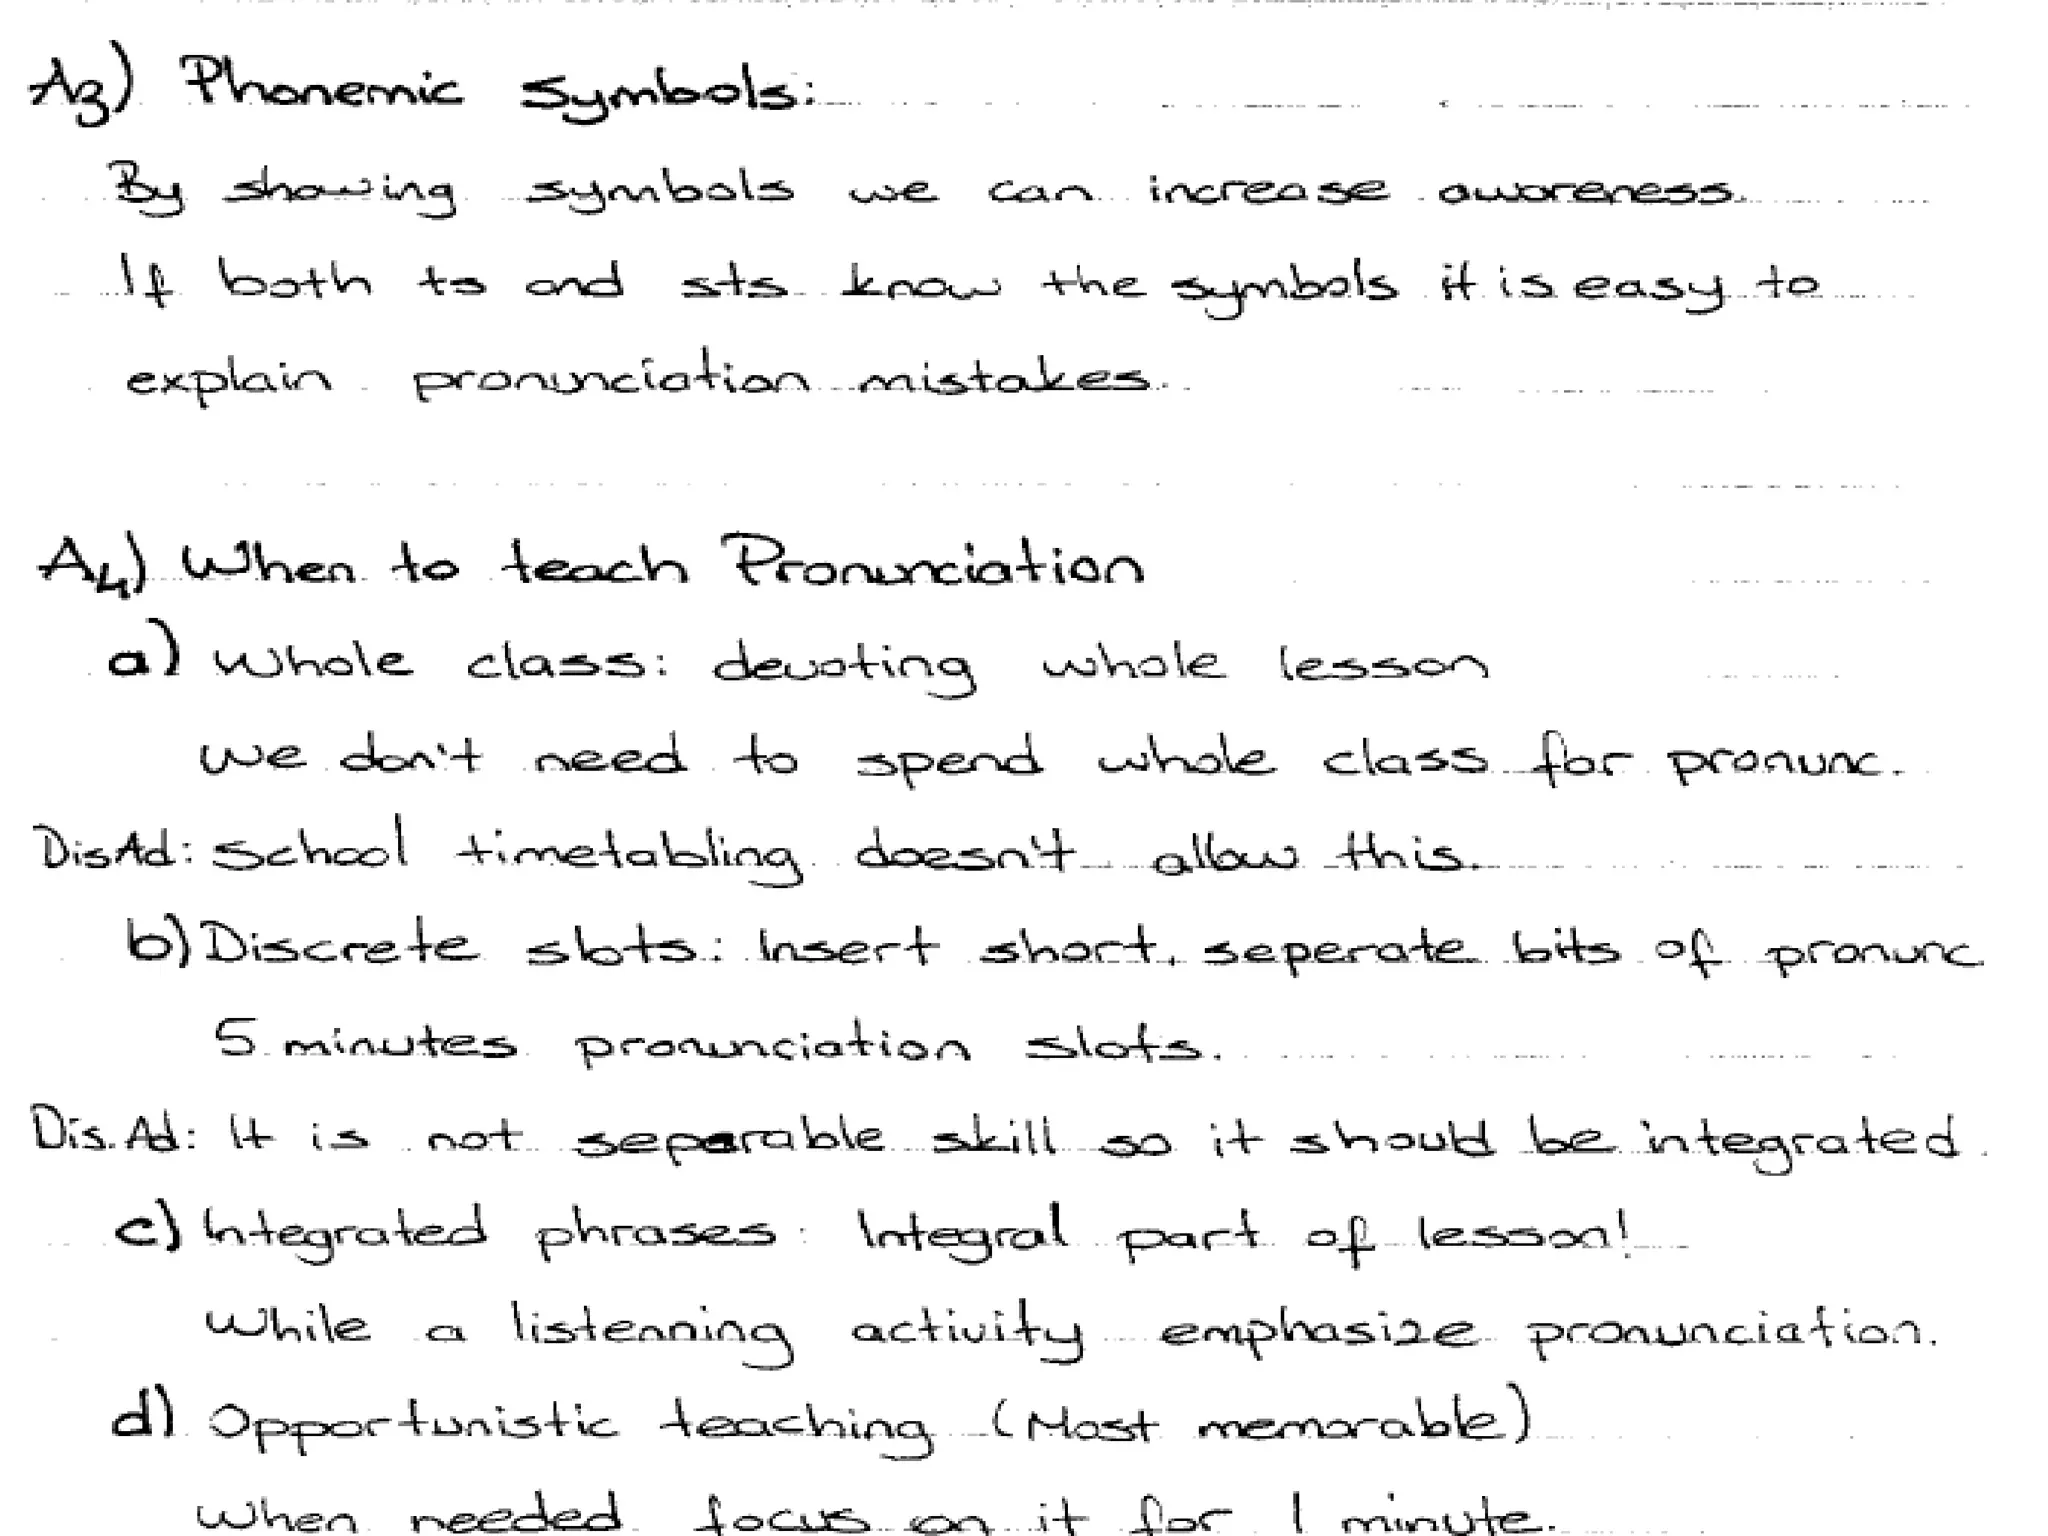 A3) Phonemic Symbols:
By showing symbols we can increase awareness.
If both ts and sts know the symbols it is easy to
explain pronunciation mistakes.
A4) When to teach Pronunciation
a) Whole class: devoting whole lesson
we don't need to spend whole class for pronunc.
DisAd: School timetabling doesn't allow this.
b) Discrete slots: Insert short, seperate bits of pronunc
5 minutes pronunciation slots.
Dis.Ad: It is not separable skill so it should be integrated.
c) Integrated phrases: Integral part of lesson!
While a listenning activity emphasize pronunciation.
d) Opportunistic teaching (Most memorable)
When needed focus on it for 1 minute.